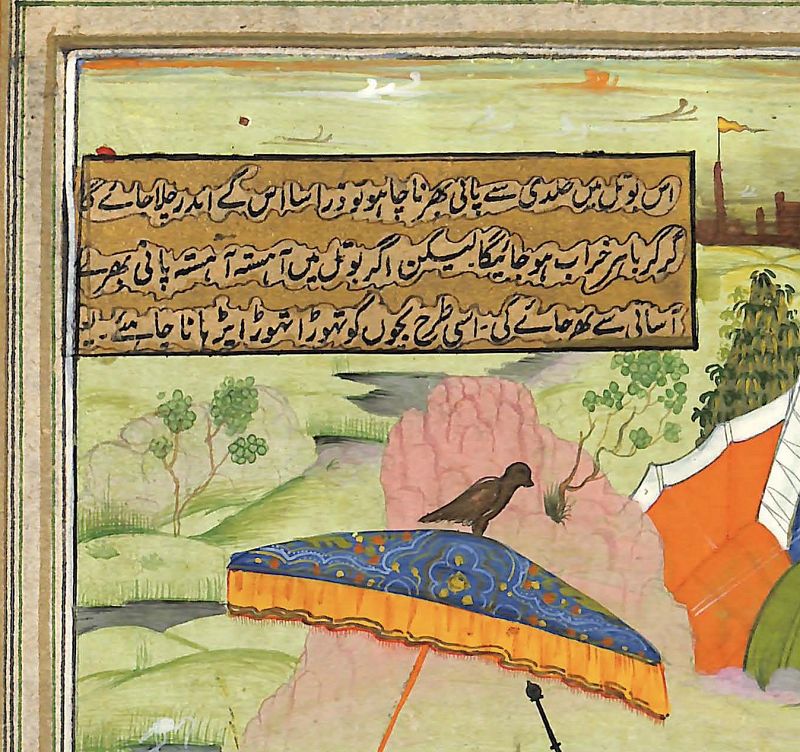 اس بوتل میں جلدی سے پانی بھرنا چاہو تو ذرا سا اس کے اندر چلا جائے گا
گر کر باہر خراب ہو جائیگا لیکن اگر بوتل میں آہستہ آہستہ پانی بھرے
آسانی سے بھر جائے گی ۔ اسی طرح بچوں کو تہوڑا تہوڑا پڑہانا چاہئے